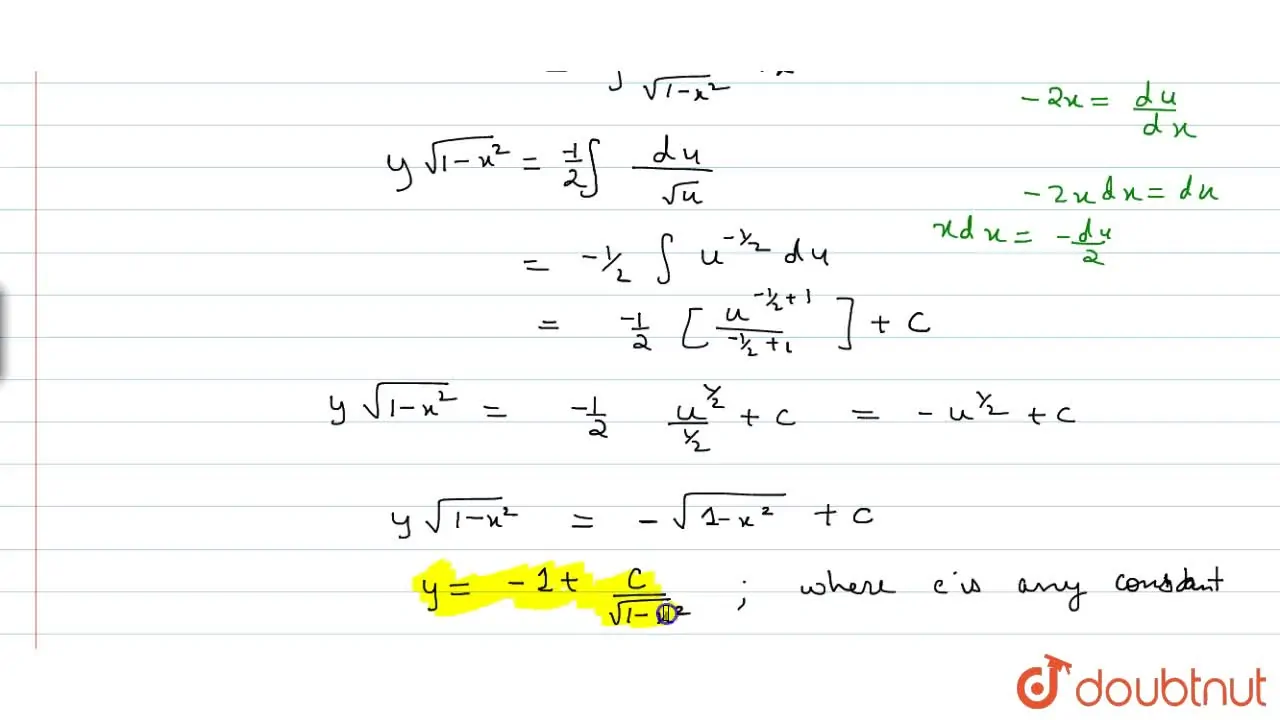 = ∫ / √(1-x²) dx
-2x = du/dx
y √(1-x²) = -1/2 ∫ du/√u
-2x dx = du
x dx = -du/2
= -1/2 ∫ u^(-1/2) du
= -1/2 [ u^(-1/2+1) / (-1/2+1) ] + C
y √(1-x²) = -1/2 u^(1/2) / (1/2) + c = - u^(1/2) + c
y √(1-x²) = - √(1-x²) + c
y = -1 + c/√(1-x²) ; where c is any constant
doubtnut